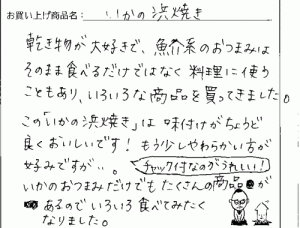 お買い上げ商品名: いかの浜焼き
乾き物が大好きで、魚介系のおつまみは
そのまま食べるだけではなく料理に使う
こともあり、いろいろな商品を買ってきました。
この「いかの浜焼き」は味付けがちょうど
良くおいしいです! もう少しやわらかい方が
好みですが…。 チャック付なのがうれしい!
いかのおつまみだけでもたくさんの商品が
あるのでいろいろ食べてみたく
なりました。